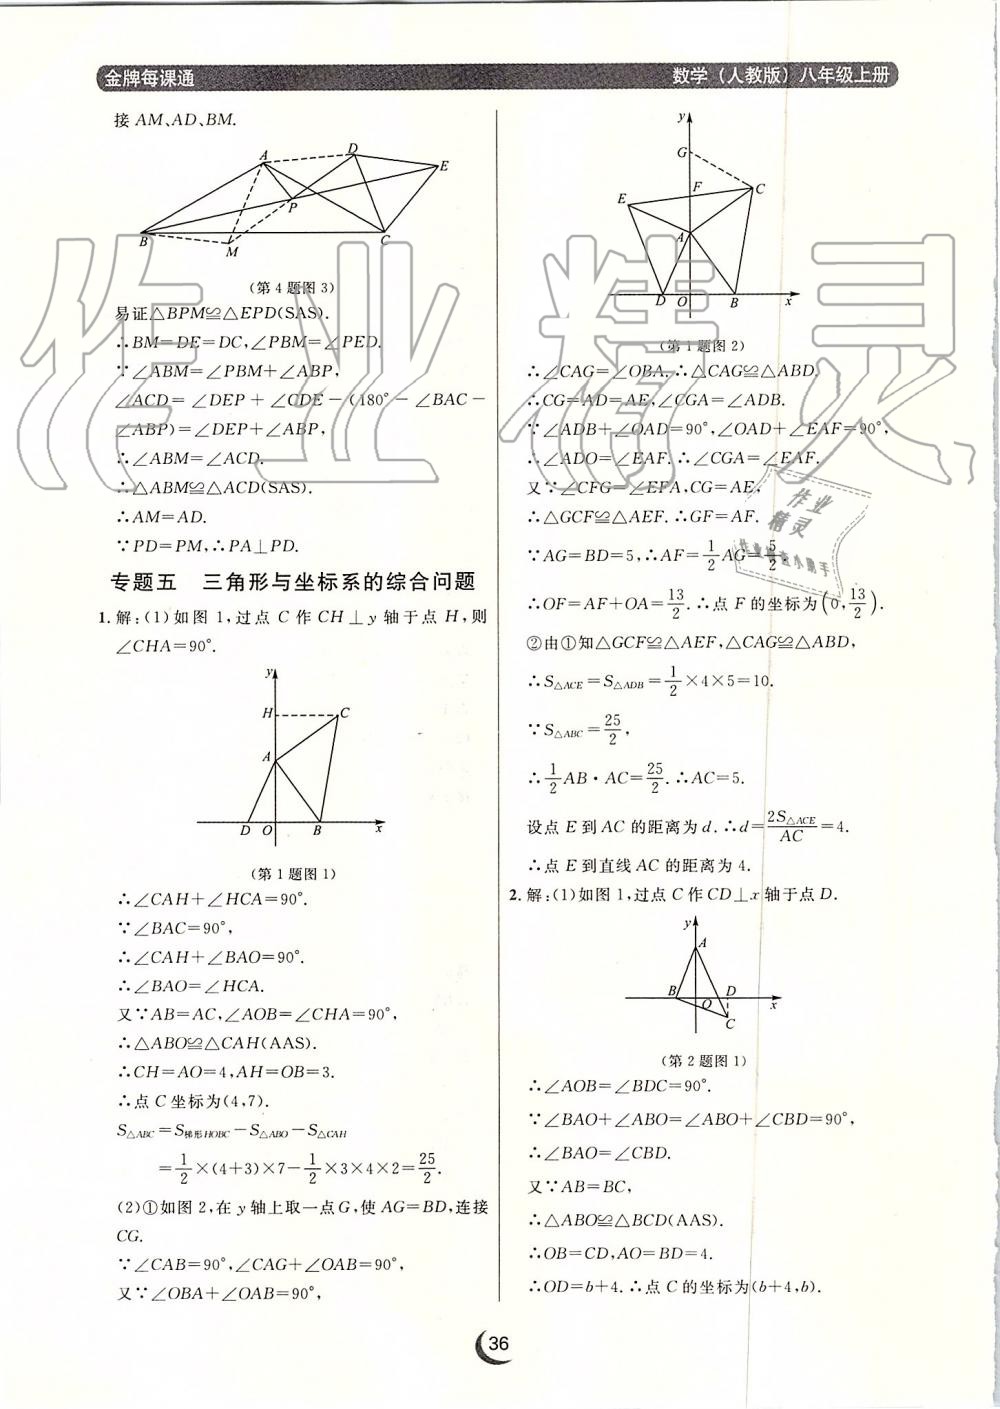 金牌每课通
数学（人教版）八年级上册
接 AM、AD、BM.
A D E P B C M
(第 4 题图 3)
易证△BPM≌△EPD(SAS).
∴BM=DE=DC,∠PBM=∠PED.
∵∠ABM=∠PBM+∠ABP,
∠ACD=∠DEP+∠CDE-(180°-∠BAC-
∠ABP)=∠DEP+∠ABP,
∴∠ABM=∠ACD.
∴△ABM≌△ACD(SAS).
∴AM=AD.
∵PD=PM,∴PA⊥PD.
专题五 三角形与坐标系的综合问题
1.解:(1)如图 1,过点 C 作 CH⊥y 轴于点 H,则
∠CHA=90°.
y H C A D O B x
(第 1 题图 1)
∴∠CAH+∠HCA=90°.
∵∠BAC=90°,
∴∠CAH+∠BAO=90°.
∴∠BAO=∠HCA.
又∵AB=AC,∠AOB=∠CHA=90°,
∴△ABO≌△CAH(AAS).
∴CH=AO=4,AH=OB=3.
∴点 C 坐标为(4,7).
S△ABC=S梯形HOBC-S△ABO-S△CAH
=1/2×(4+3)×7-1/2×3×4×2=25/2.
(2)①如图 2,在 y 轴上取一点 G,使 AG=BD,连接
CG.
∵∠CAB=90°,∠CAG+∠OAB=90°,
又∵∠OBA+∠OAB=90°,
y G F C E A D O B x
(第 1 题图 2)
∴∠CAG=∠OBA.∴△CAG≌△ABD.
∴CG=AD=AE,∠CGA=∠ADB.
∵∠ADB+∠OAD=90°,∠OAD+∠EAF=90°,
∴∠ADO=∠EAF.∴∠CGA=∠EAF.
又∵∠CFG=∠EFA,CG=AE,
∴△GCF≌△AEF.∴GF=AF.
∵AG=BD=5,∴AF=1/2AG=5/2.
∴OF=AF+OA=13/2.∴点 F 的坐标为(0,13/2).
②由①知△GCF≌△AEF,△CAG≌△ABD,
∴S△ACE=S△ADB=1/2×4×5=10.
∵S△ABC=25/2,
∴1/2AB·AC=25/2.∴AC=5.
设点 E 到 AC 的距离为 d.∴d=2S△ACE/AC=4.
∴点 E 到直线 AC 的距离为 4.
2.解:(1)如图 1,过点 C 作 CD⊥x 轴于点 D.
y A B O D x C
(第 2 题图 1)
∴∠AOB=∠BDC=90°.
∵∠BAO+∠ABO=∠ABO+∠CBD=90°,
∴∠BAO=∠CBD.
又∵AB=BC,
∴△ABO≌△BCD(AAS).
∴OB=CD,AO=BD=4.
∴OD=b+4.∴点 C 的坐标为(b+4,b).
36
作业精灵
作业
精灵